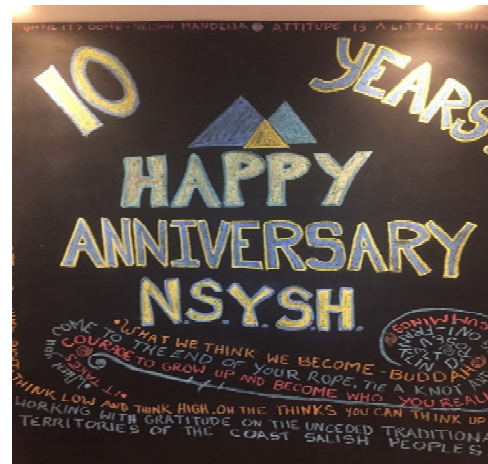 UNTIL ITS DONE-NELSON MANDELLA ATTITUDE IS A LITTLE THIN
10 YEARS!
HAPPY
ANNIVERSARY
N.S.Y.S.H.
• WHAT WE THINK WE BECOME - BUDDAH
COME TO THE END OF YOUR ROPE, TIE A KNOT
• IT TAKES COURAGE TO GROW UP AND BECOME WHO YOU REALL
THINK LOW AND THINK HIGH. OH THE THINKS YOU CAN THINK UP
WORKING WITH GRATITUDE ON THE UNCEDED TRADITIONA
TERRITORIES OF THE COAST SALISH PEOPLES